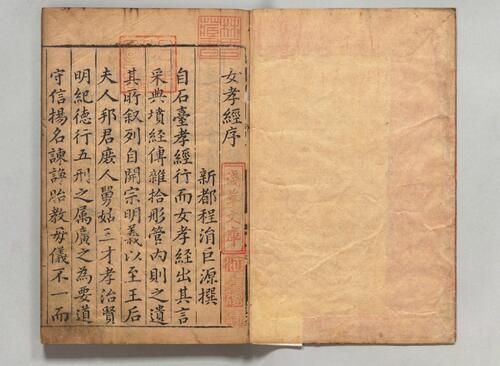 女孝經序
新都程涓巨源撰
自石臺孝經行而女孝經出其言
采典墳經傳雜拾彤管內則之遺
其所叙列自開宗明義以至王后
夫人邦君庶人舅姑三才孝治賢
明紀德行五刑之属廣之為要道
守信揚名諫諍胎教母儀不一而
淺草文庫